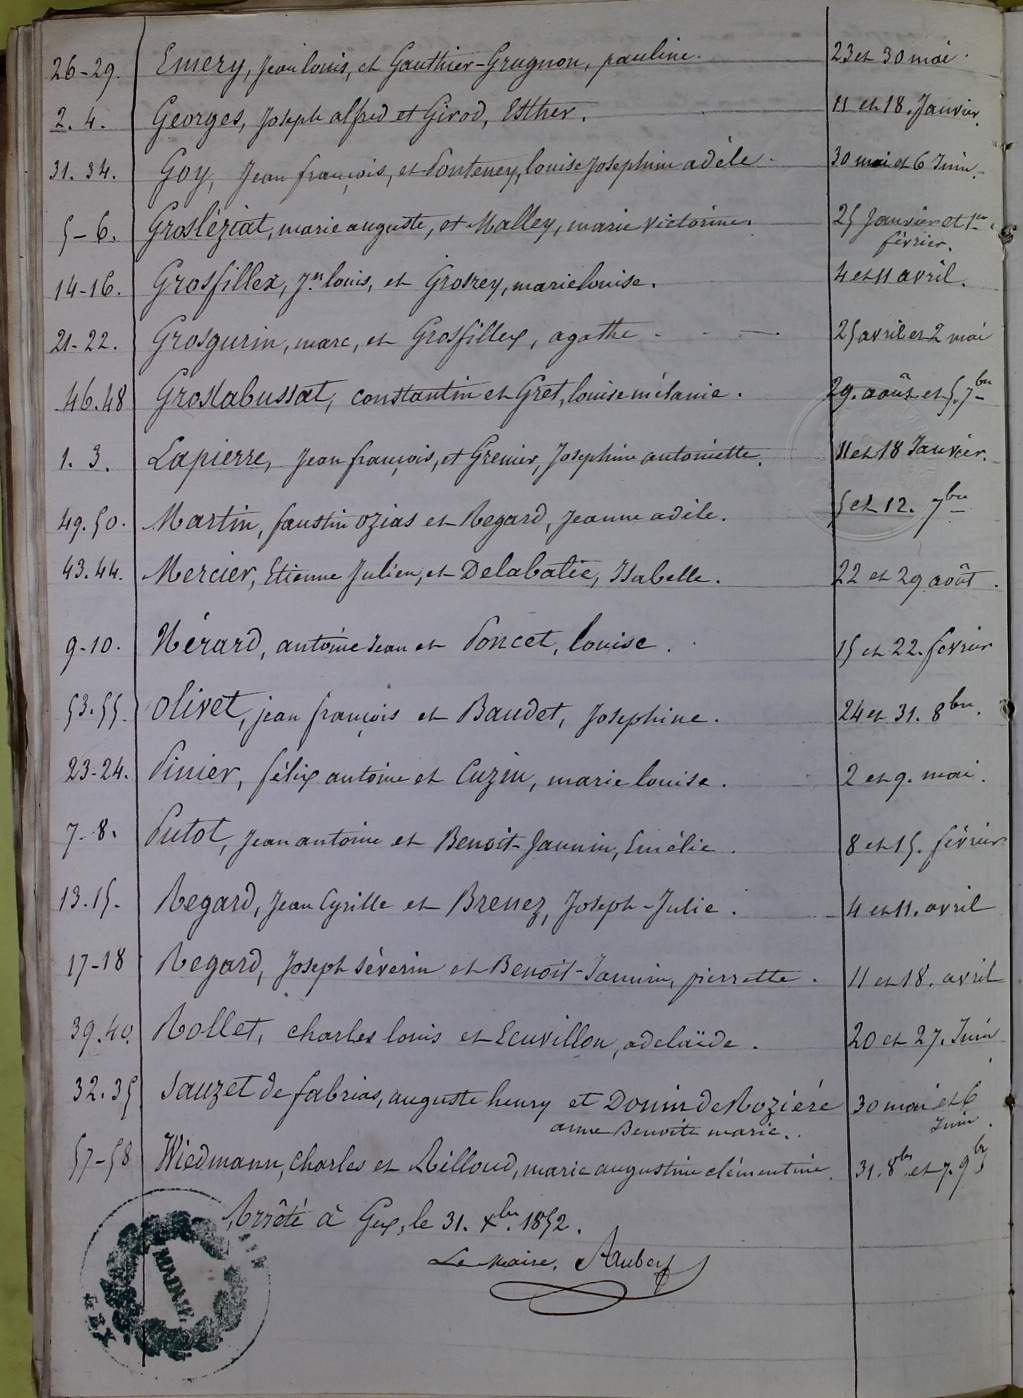 26-29. Emery, Jean louis, et Gauthier-Grugnon, pauline. 23 et 30 mai.
2. 4. Georges, Joseph alfred et Girod, Esther. 11 et 18. Janvier.
31. 34. Goy, Jean françois, et Ponteney, louise Josephine adèle. 30 mai et 6 Juin.
5-6. Grosléziat, marie auguste, et Malley, marie victorine. 25 Janvier et 1er
février.
14-16. Grosfillex, Jn louis, et Grosrey, marie louise. 4 et 11 avril.
21-22. Grosgurin, marc, et Grosfilley, agathe - - - 25 avril et 2 mai
46.48 Groslabussat, constantin et Gret, louise mélanie. 29. août et 5. 7bre
1. 3. Lapierre, Jean françois, et Grenier, Josephine antoinette. 11 et 18 Janvier.
49.50. Martin, faustin ozias et Regard, Jeanne adèle. 5 et 12. 7bre
43.44. Mercier, Etienne Julien, et Delabatie, Isabelle. 22 et 29 août.
9-10. Nérard, antoine Jean et Poncet, louise. 15 et 22. février
53.55. Olivet, jean françois et Baudet, Josephine. 24 et 31. 8bre.
23-24. Pinier, félix antoine et Cuzin, marie louise. 2 et 9. mai.
7-8. Putot, Jean antoine et Benoit-Jannin, Emélie. 8 et 15. février
13.15. Regard, Jean Cyrille et Brenez, Joseph-Julie. 4 et 11. avril
17-18 Regard, Joseph séverin et Benoit-Jannin, pierrette. 11 et 18. avril
39.40. Rollet, charles louis et Ecuvillon, adelaïde. 20 et 27. Juin
32.35 Sauzet de fabrias, auguste henry et Donin de Rozière 30 mai et 6
anne Benoite marie. Juin.
57-58 Wiedmann, Charles et Rilloud, marie augustine clémentine. 31. 8bre et 7. 9bre
Arrêté à Gex, le 31. xbre. 1852.
Le Maire,
MAIRIE
GEX